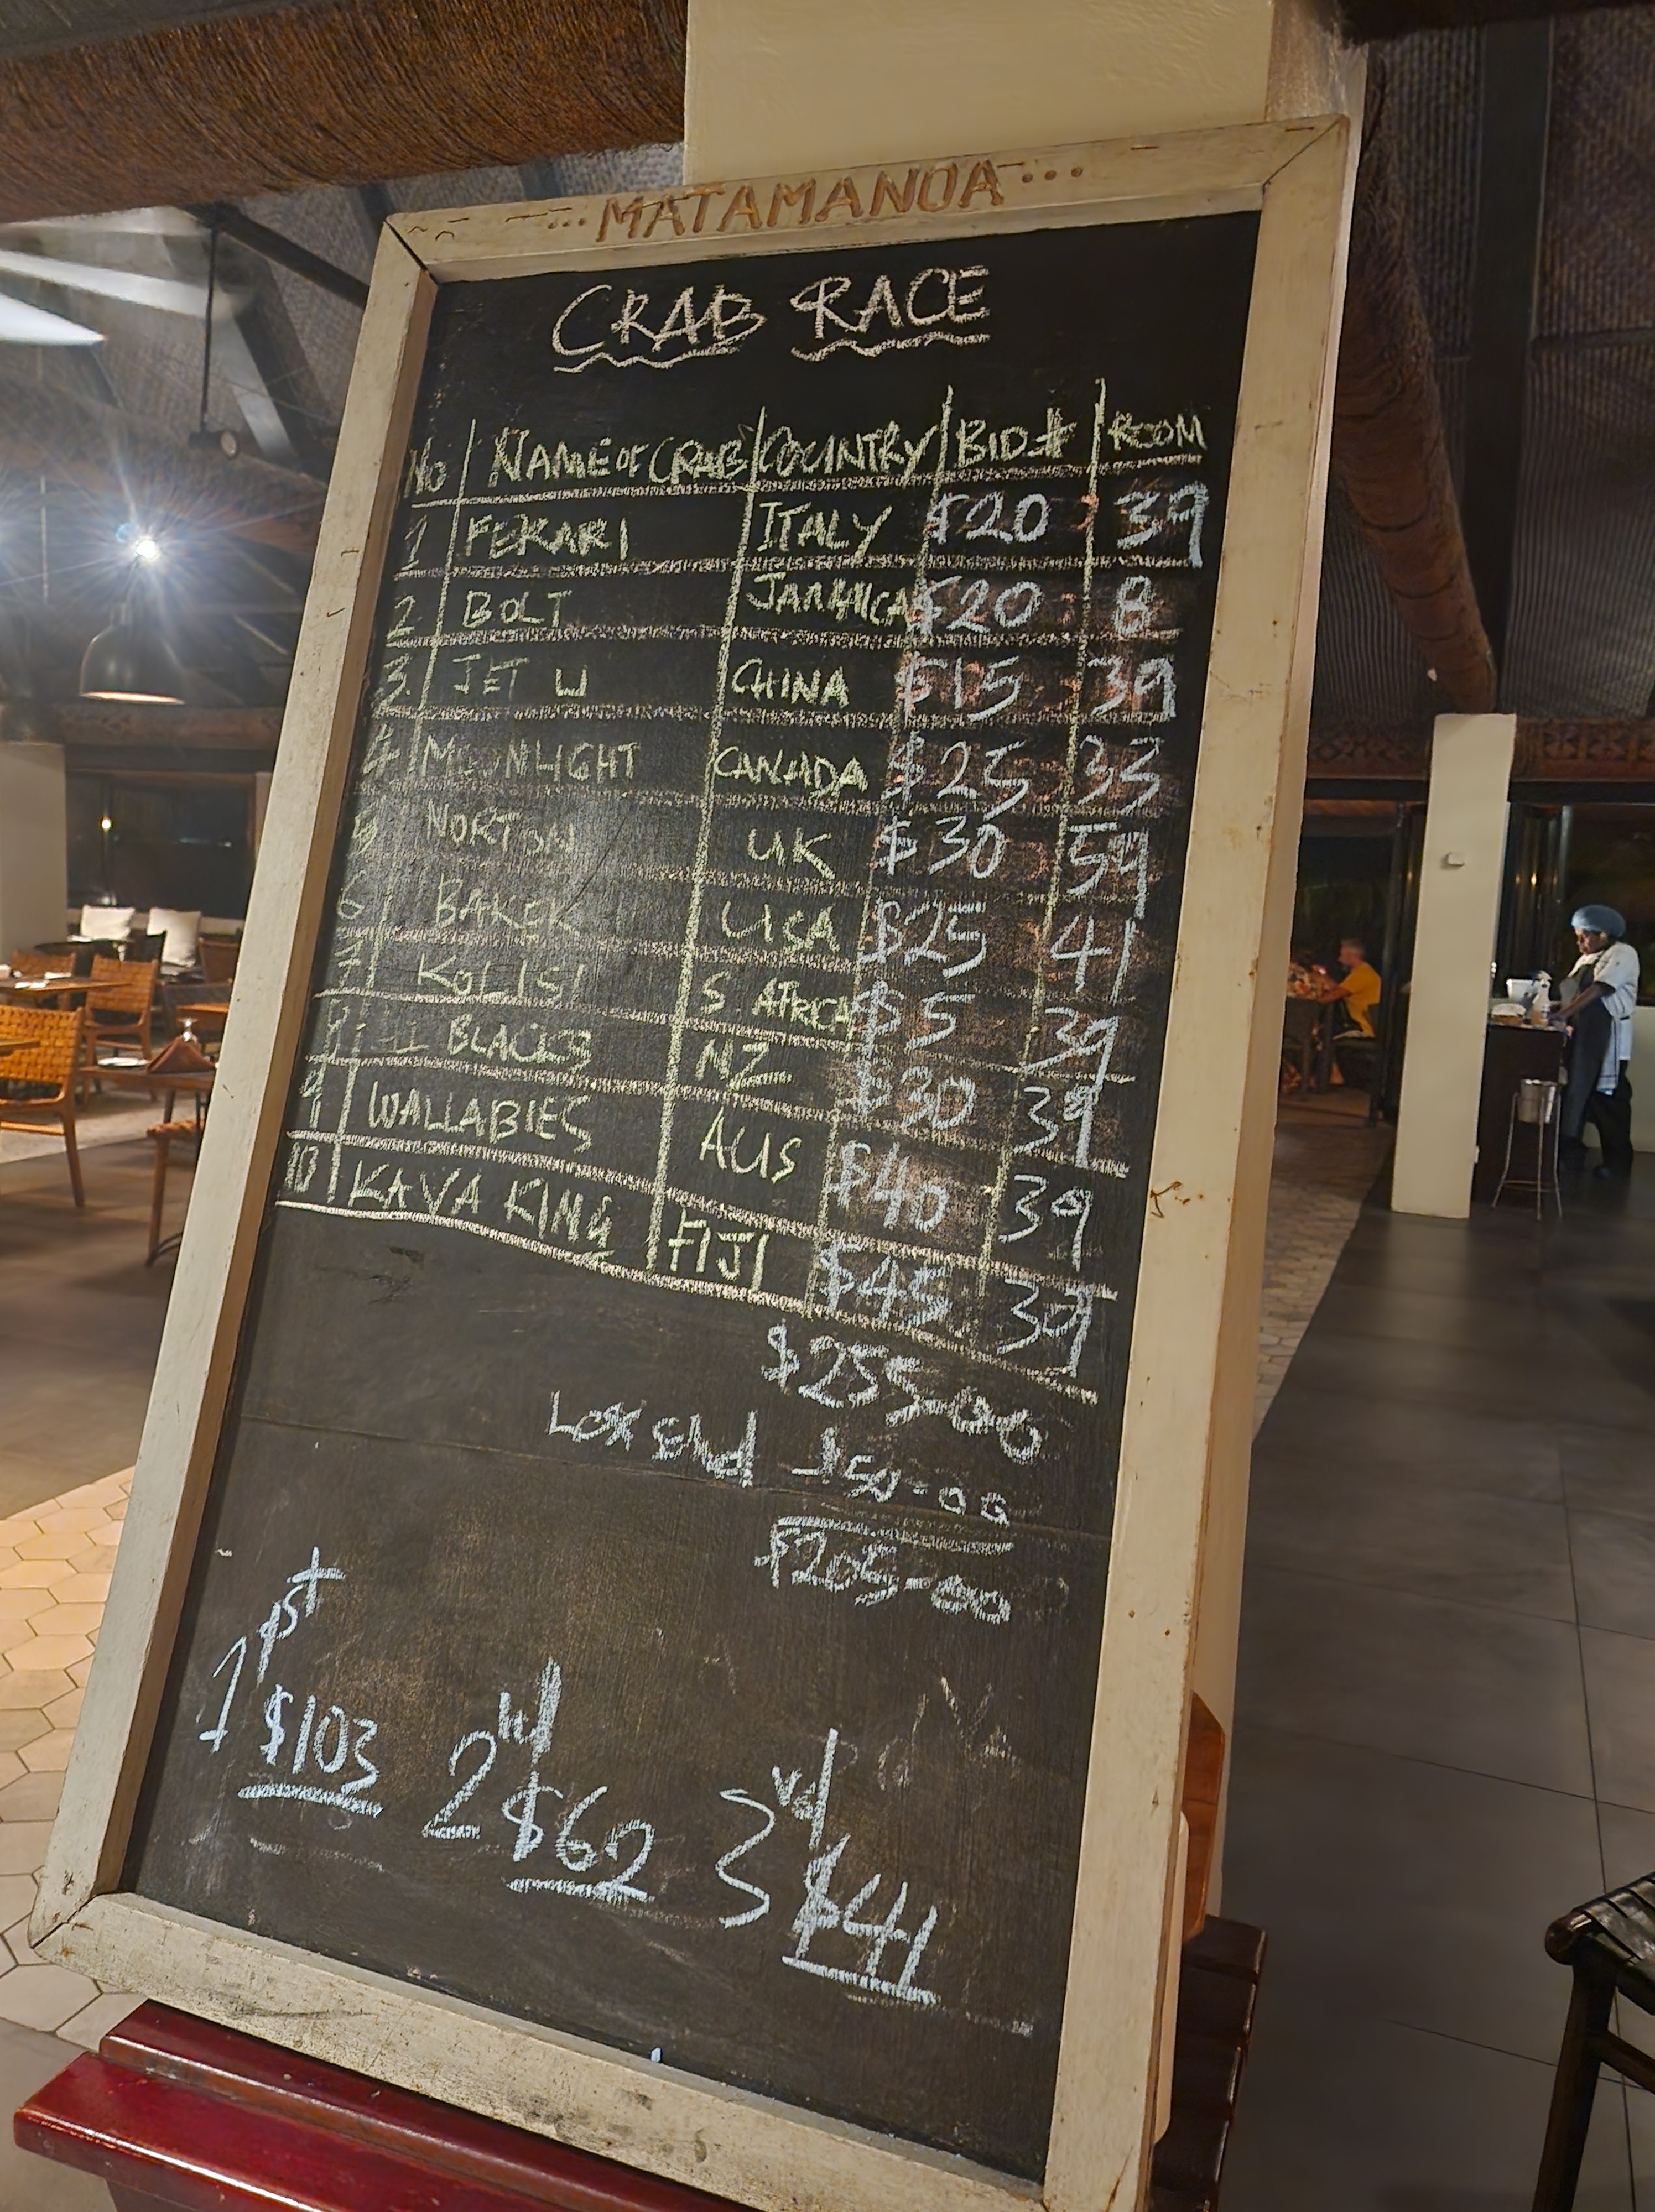 ...MATAMANOA...
CRAB RACE
No NAME OF CRAB COUNTRY BID # ROOM
1 FERARI ITALY $20 39
2 BOLT JAMAICA $20 8
3. JET LI CHINA $15 39
4 MOONLIGHT CANADA $25 33
5 NORTON UK $30 59
6 BAKER USA $25 41
7 KOLISI S. AFRICA $5 39
8. BLACKS NZ $30 39
9 WALLABIES AUS $40 39
10 KAVA KING FIJI $45 39
$255-00
- 50-00
$205-00
1st $103 2nd $62 3rd $41